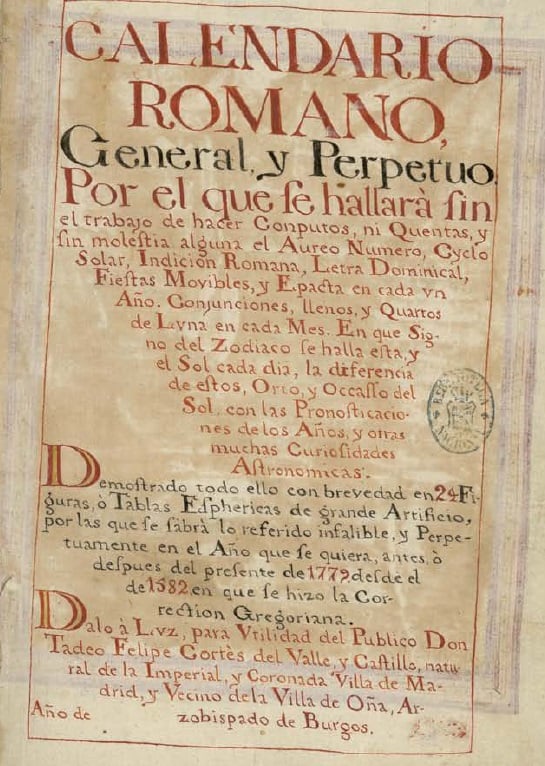 CALENDARIO
ROMANO,
General, y Perpetuo,
Por el que ſe hallarà ſin
el trabajo de hacer Conputos, ni Quentas, y
ſin moleſtia alguna el Aureo Numero, Cyclo
Solar, Indiciòn Romana, Letra Dominical,
Fieſtas Movibles, y Epacta en cada vn
Año. Conjunciones, llenos, y Quartos
de Lvna en cada Mes. En que Sig-
no del Zodiaco ſe halla eſta, y
el Sol cada dia, la diferencia
de eſtos, Orto, y Occaſſo del
Sol, con las Pronoſticacio-
nes de los Años, y otras
muchas Curioſidades
Aſtronomicas.
Demoſtrado todo ello con brevedad en 24 Fi-
guras, ò Tablas Eſphericas de grande Artificio,
por las que ſe ſabrà lo referido infalible, y Perpe-
tuamente en el Año que ſe quiera, antes, ò
deſpues del preſente de 1779 deſde el
de 1582 en que ſe hizo la Cor-
rection Gregoriana.
Dalo à Lvz, para Vtilidad del Publico Don
Tadeo Felipe Cortès del Valle, y Caſtillo, natu-
ral de la Imperial, y Coronada Villa de Ma-
drid, y Vecino de la Villa de Oña, Ar-
zobispado de Burgos.
Año de